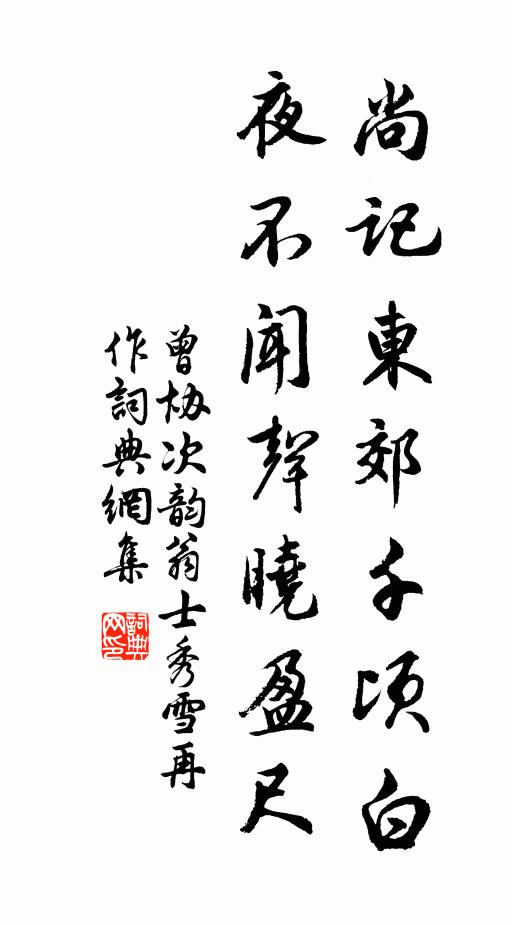 尚記東郊千頃白
夜不聞聲曉盈尺
曾協次韵翁士秀雪再
作詞典網集
詞典网印